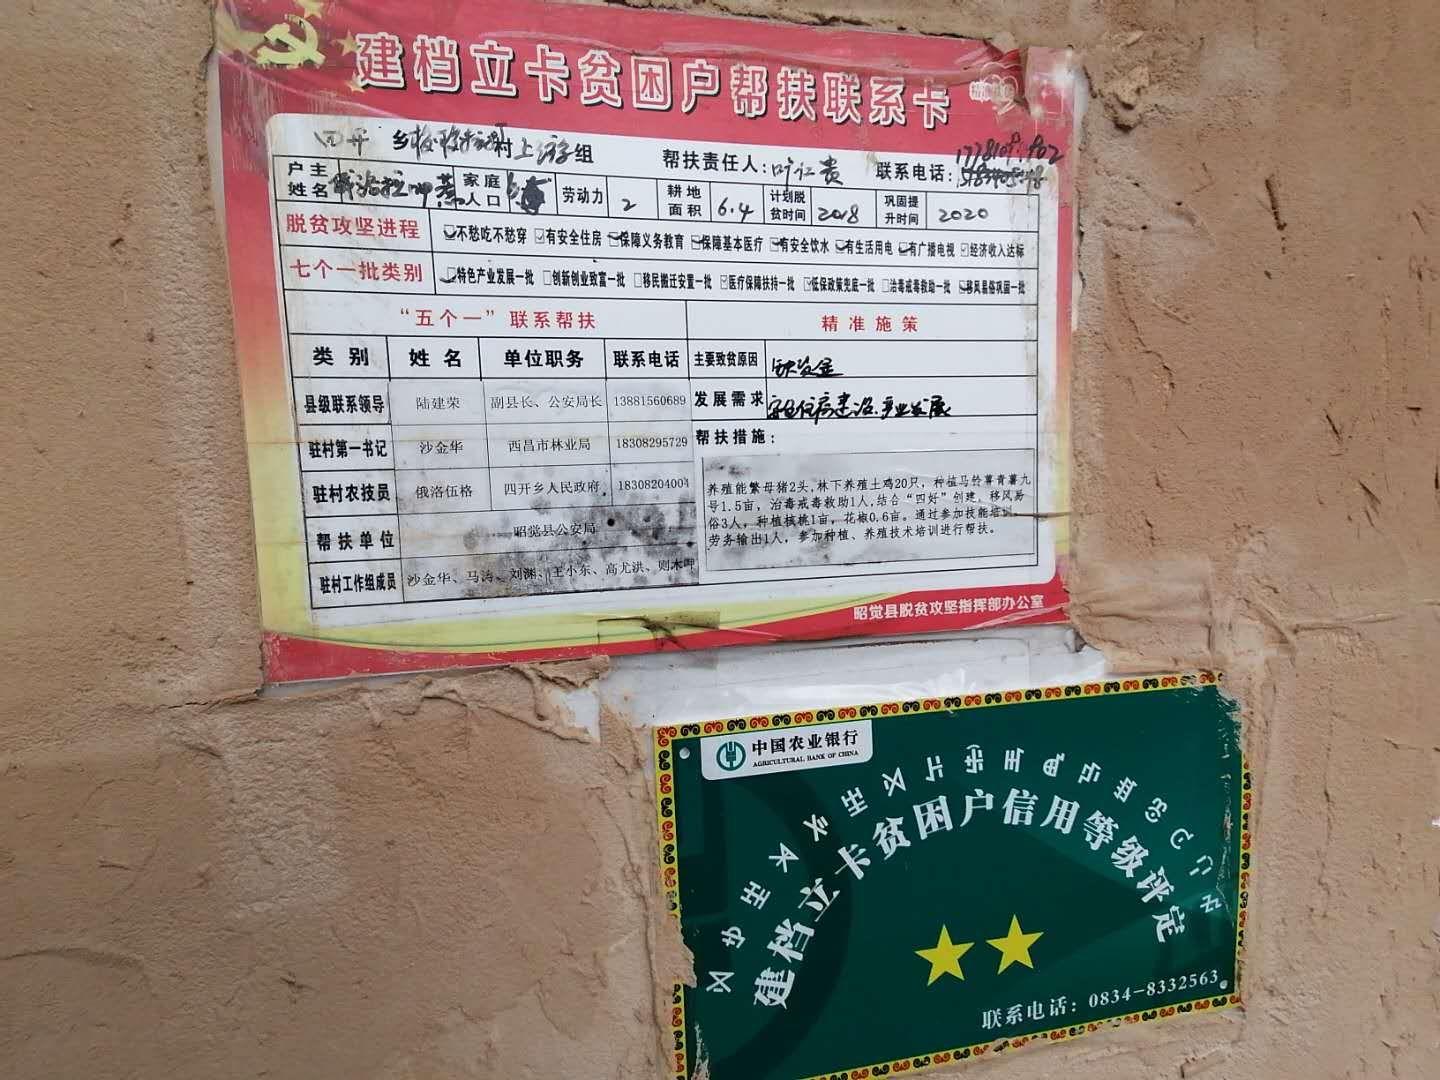 建档立卡贫困户帮扶联系卡
四开 乡 村上游组 帮扶责任人：叶仁贵 联系电话：
户主姓名 家庭人口 劳动力 2 耕地面积 6.4 计划脱贫时间 2018 巩固提升时间 2020
脱贫攻坚进程 ☑不愁吃不愁穿 ☑有安全住房 ☑保障义务教育 ☑保障基本医疗 ☑有安全饮水 ☑有生活用电 ☑有广播电视 ☑经济收入达标
七个一批类别 ☑特色产业发展一批 □创新创业致富一批 □移民搬迁安置一批 ☑医疗保障扶持一批 ☑低保政策兜底一批 □治毒戒毒救助一批 ☑移风易俗巩固一批
“五个一”联系帮扶 精准施策
类别 姓名 单位职务 联系电话 主要致贫原因 缺资金
县级联系领导 陆建荣 副县长、公安局长 13881560689 发展需求 住房建设、产业发展
驻村第一书记 沙金华 西昌市林业局 18308295729 帮扶措施：
驻村农技员 俄洛伍格 四开乡人民政府 18308204004
帮扶单位 昭觉县公安局
驻村工作组成员 沙金华、马涛、刘渊、王小东、高尤洪、则木呷
养殖能繁母猪2头，林下养殖土鸡20只，种植马铃薯青薯九
号1.5亩，治毒戒毒救助1人，结合“四好”创建，移风易
俗3人，种植核桃1亩，花椒0.6亩。通过参加技能培训
劳务输出1人，参加种植、养殖技术培训进行帮扶。
昭觉县脱贫攻坚指挥部办公室
中国农业银行
AGRICULTURAL BANK OF CHINA
建档立卡贫困户信用等级评定
联系电话：0834-8332563